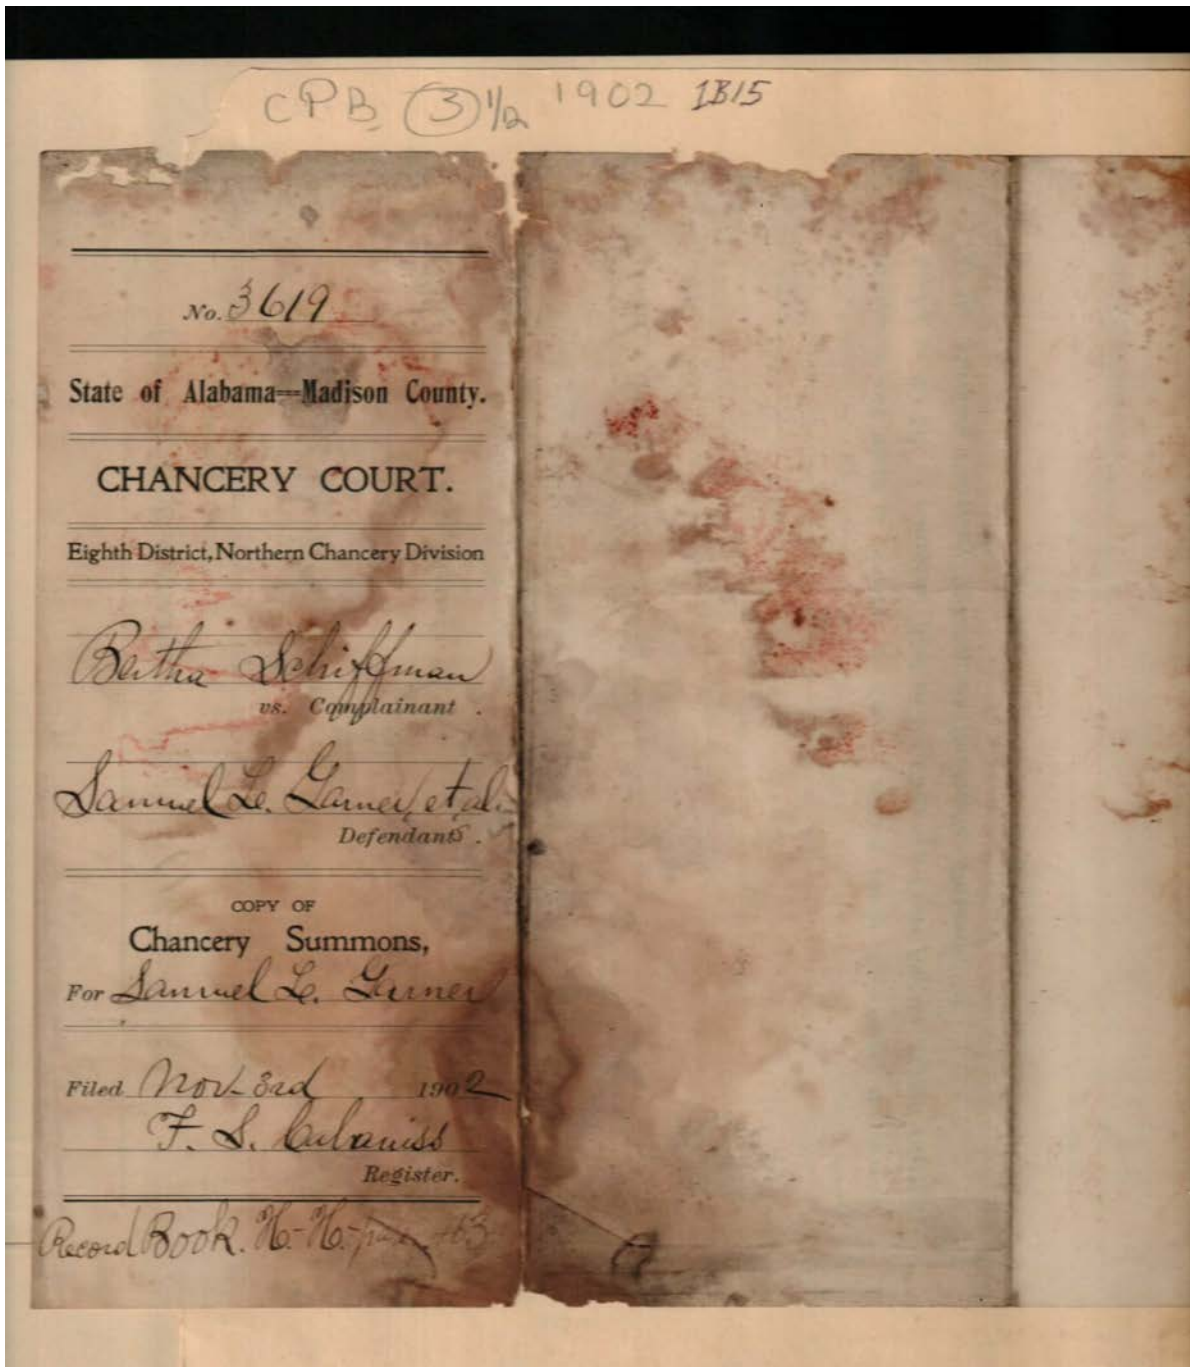 CPB (3) 1/2 1902 1B15
No. 3619
State of Alabama—Madison County.
CHANCERY COURT.
Eighth District, Northern Chancery Division
Bertha Schiffman
vs. Complainant .
Samuel Le. Garner, et al.
Defendants.
COPY OF
Chancery Summons,
For Samuel Le. Garner
Filed Nov. 3rd 1902
F. S. Cabaniss
Register.
Record Book. H.-H.